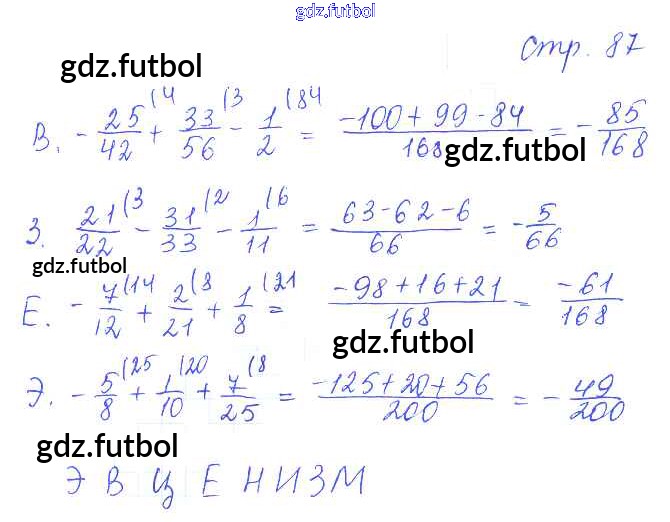 gdz.futbol
Стр. 87
gdz.futbol
В. - 25/42 (4 + 33/56 (3 - 1/2 (84 = -100 + 99 - 84/168 = - 85/168
gdz.futbol
З. 21/22 (3 - 31/33 (2 - 1/11 (6 = 63 - 62 - 6/66 = - 5/66
gdz.futbol
Е. - 7/12 (14 + 2/21 (8 + 1/8 (21 = -98 + 16 + 21/168 = -61/168
gdz.futbol
Э. - 5/8 (25 + 1/10 (20 + 7/25 (8 = -125 + 20 + 56/200 = - 49/200
gdz.futbol
Э В Ц Е Н И З М